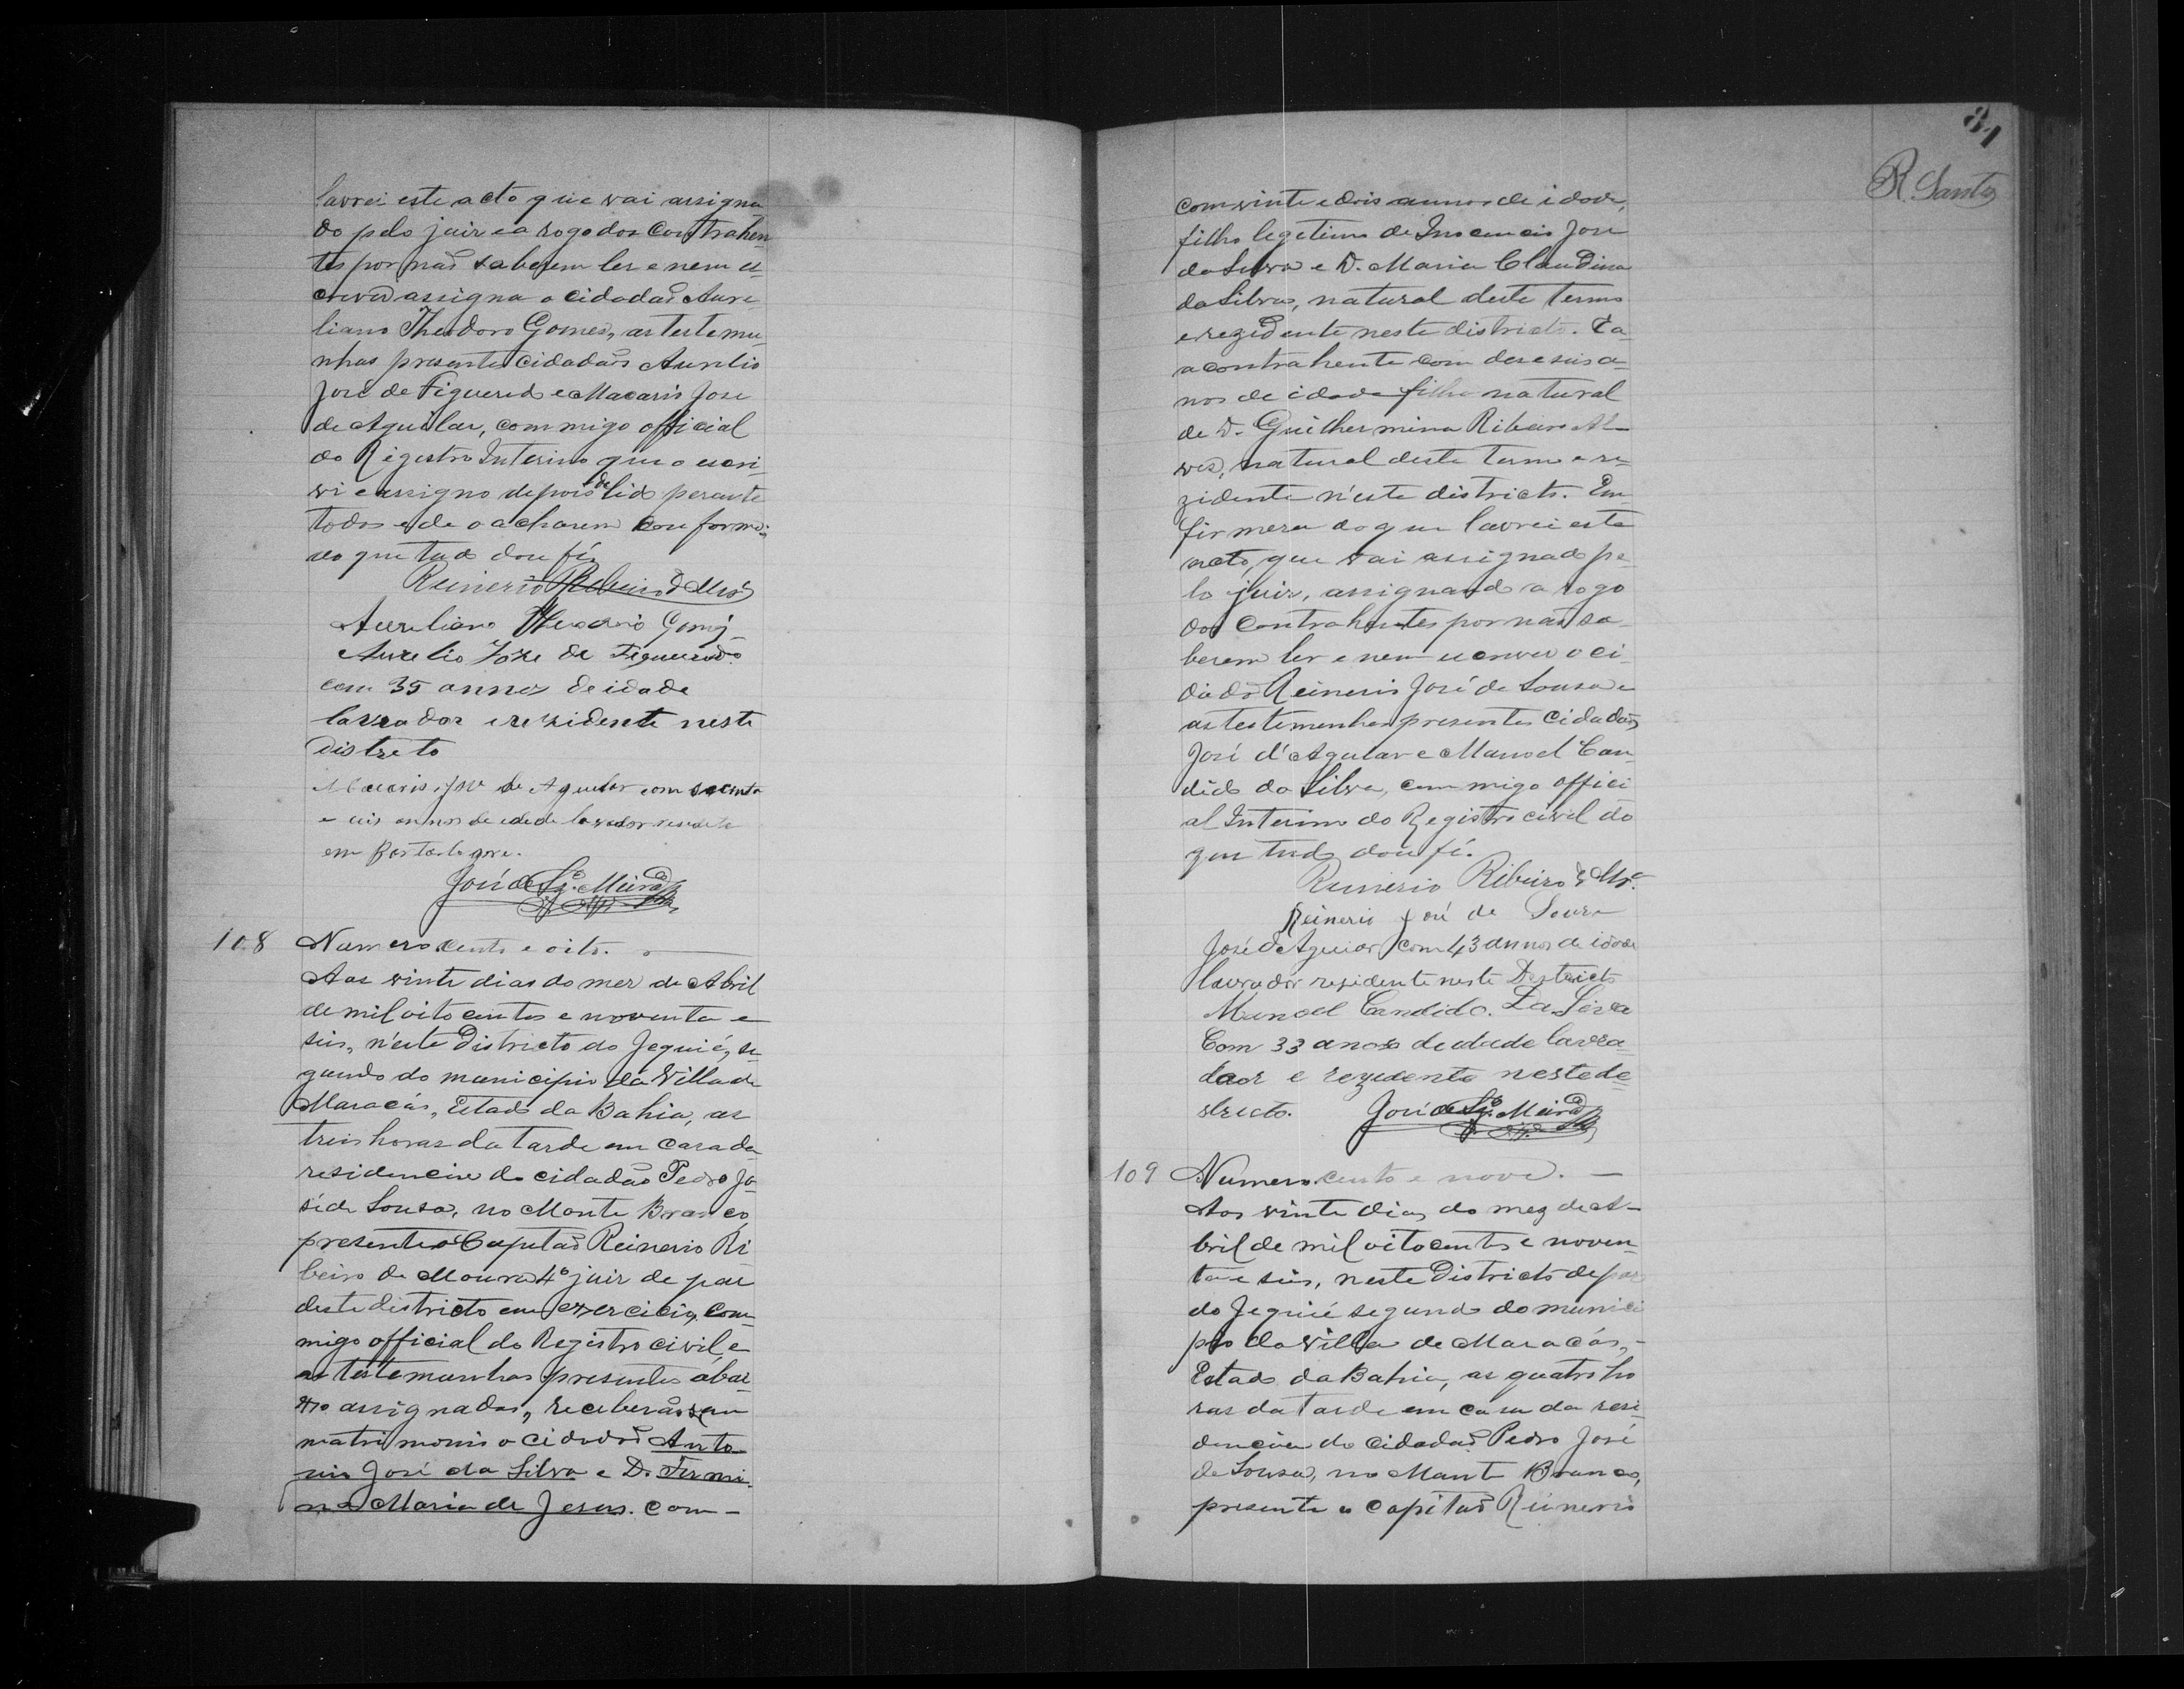 lavrei este acto que vai assigna-
do pelo juiz e a rogo dos Contrahen
tes por não saberem ler e nem es
crever assigna o cidadão Aure
liano Theodoro Gomes, as testemu
nhas presentes cidadãos Aurelio
José de Figueredo e Macario Jose
de Aguilar, commigo official
do Registro Interino que o escri
vi e assigno depois de lido perante
todos e de o acharem conforme;
do que tudo dou fé.
Reinerio Ribeiro de Mrª
Aureliano Theodorio Gomes
Aurelio Joze de Figueredo
com 35 annos de idade
lavrador e rezidente neste
Distreto
Macario Jose de Aguilar com
e annos de idade lavrador
em
José de Sza. Meira
108 Numero cento e oito.
Aos vinte dias do mez de Abril
de mil oito centos e noventa e
seis, n'este Districto do Jequié, se
gundo do municipio da Villa de
Maracás, Estado da Bahia, as
treis horas da tarde em casa da
residencia do cidadão Pedro Jo
sé de Sousa, no Monte Branco,
presente o Capitão Reinerio Ri
beiro de Moura 4º juiz de paz
deste districto em exercicio, com
migo official do Registro civil, e
as testemunhas presentes abai
xo assignadas, receberão se em
matrimonio o cidadão Anto
nio José da Silva e D. Firmi-
na Maria de Jesus. Com-
81
R. Santos
com vinte e dois annos de idade,
filho legitimo de Inocencio José
da Silva e D. Maria Claudina
da Silva, natural deste termo
e rezidente neste districto. E a
a contrahente com deseseis a-
nos de idade filha natural
de D. Guilhermina Ribeiro Al-
ves, natural deste termo e re-
zidente n'este districto. Em
firmeza do que lavrei este
acto, que vai assignado pe
lo juiz, assignando a rogo
dos Contrahentes por não sa-
berem ler e nem escrever o ci-
dadão Reinerio José de Sousa e
as testemunhas presentes Cidadãos
José d'Aguiar e Manoel Can-
dido da Silva, commigo offici
al Interino do Registro civil do
que tudo dou fé.
Reinerio Ribeiro de Mrª
Reinerio José de Souza
José d'Aguiar com 43 annos de idade
lavrador rezidente neste Destricto
Manoel Candido. Da Silva
Com 33 anos de idade lavra-
daor e rezedente neste de-
stricto. José de Sza. Meira
109 Numero cento e nove. —
Aos vinte dias do mez de A-
bril de mil oitocentos e noven-
ta e seis, neste Districto de paz
do Jequié segundo do munici
pio da villa de Maracás, -
Estado da Bahia, as quatro ho
ras da tarde em casa da resi-
dencia do cidadão Pedro José
de Sousa, no Monte Branco,
presente o Capitão Reinerio